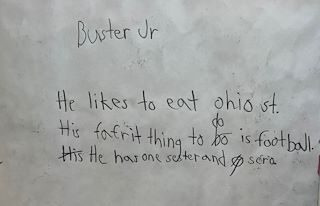 Buster Jr
He likes to eat ohio st.
His fafrit thing to do is football.
He has one sester and sera